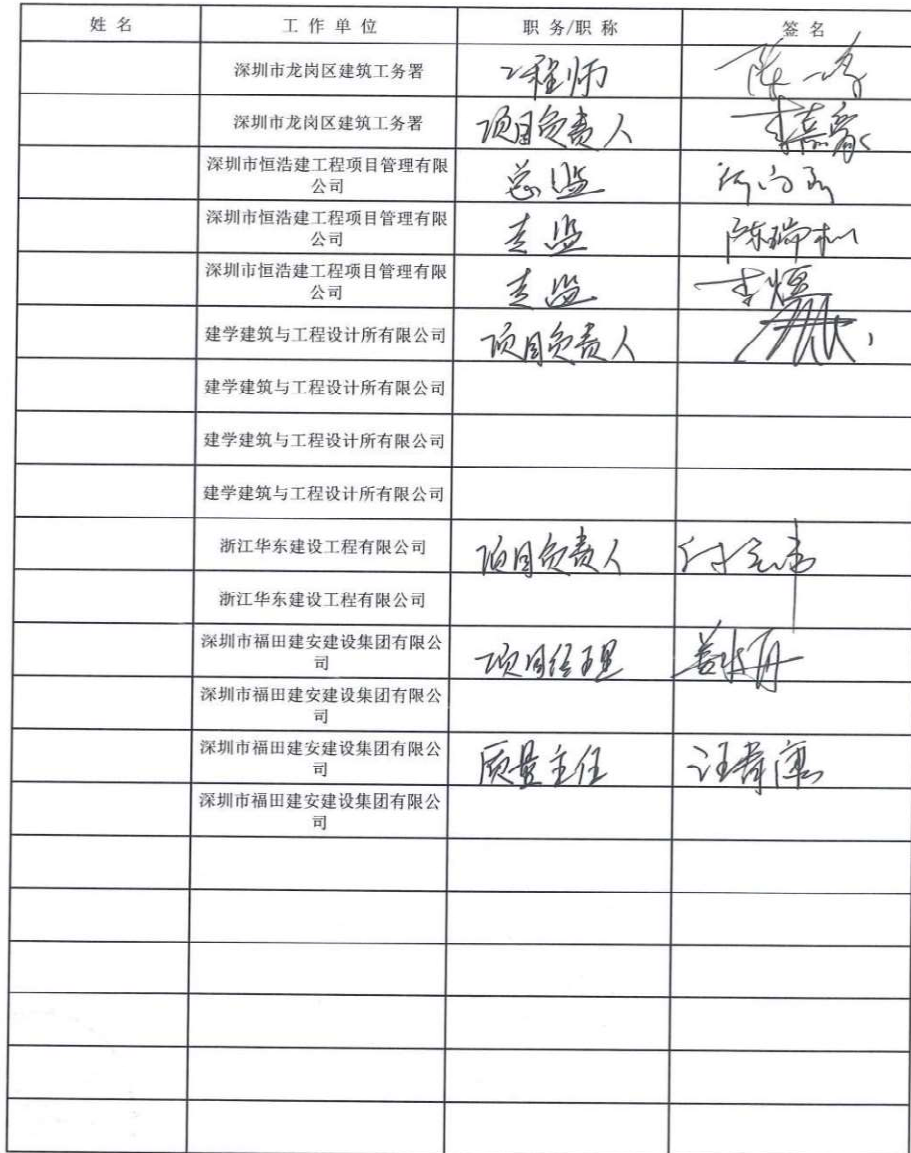 姓 名 工 作 单 位 职 务/职 称 签 名
深圳市龙岗区建筑工务署 工程师 陈一鸣
深圳市龙岗区建筑工务署 项目负责人
深圳市恒浩建工程项目管理有限
公司 总监
深圳市恒浩建工程项目管理有限
公司 专监 陈瑞
深圳市恒浩建工程项目管理有限
公司 专监 李煜
建学建筑与工程设计所有限公司 项目负责人
建学建筑与工程设计所有限公司
建学建筑与工程设计所有限公司
建学建筑与工程设计所有限公司
浙江华东建设工程有限公司 项目负责人
浙江华东建设工程有限公司
深圳市福田建安建设集团有限公
司 项目经理
深圳市福田建安建设集团有限公
司
深圳市福田建安建设集团有限公
司 质量主任
深圳市福田建安建设集团有限公
司